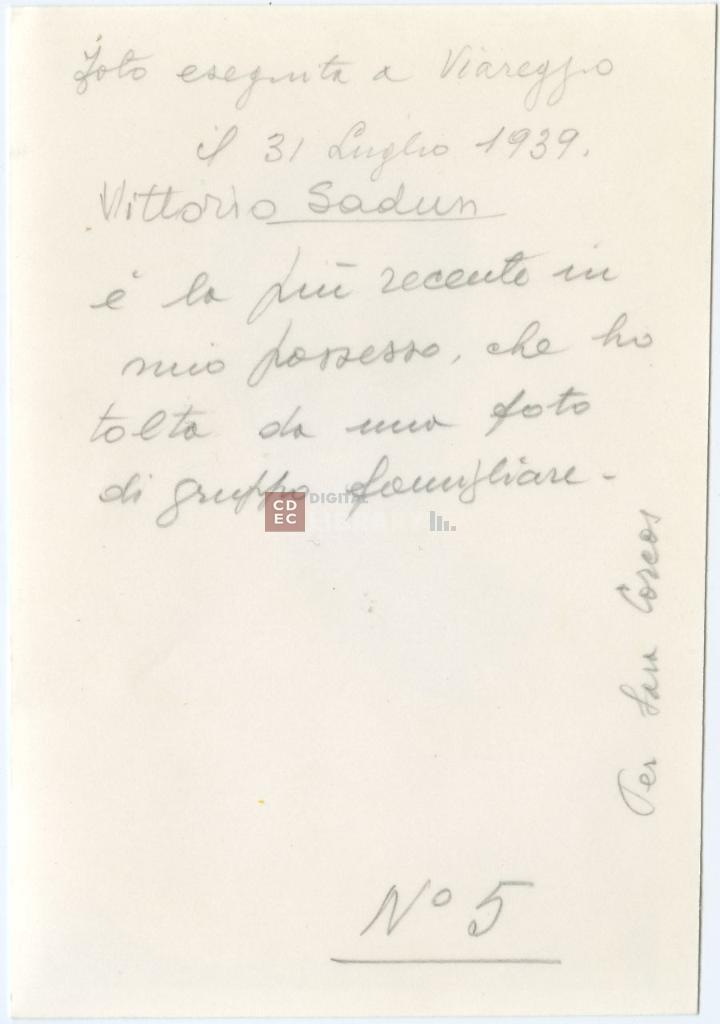 Foto eseguita a Viareggio
il 31 Luglio 1939.
Vittorio Sadun
è la più recente in
mio possesso, che ho
tolta da una foto
di gruppo famigliare -
CDEC DIGITAL
Per Sara Corcos
N° 5